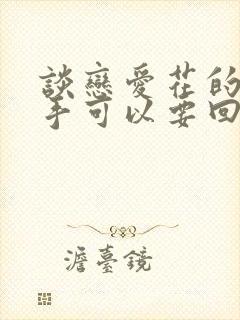 談戀愛花的
手可以要回
澹臺鏡